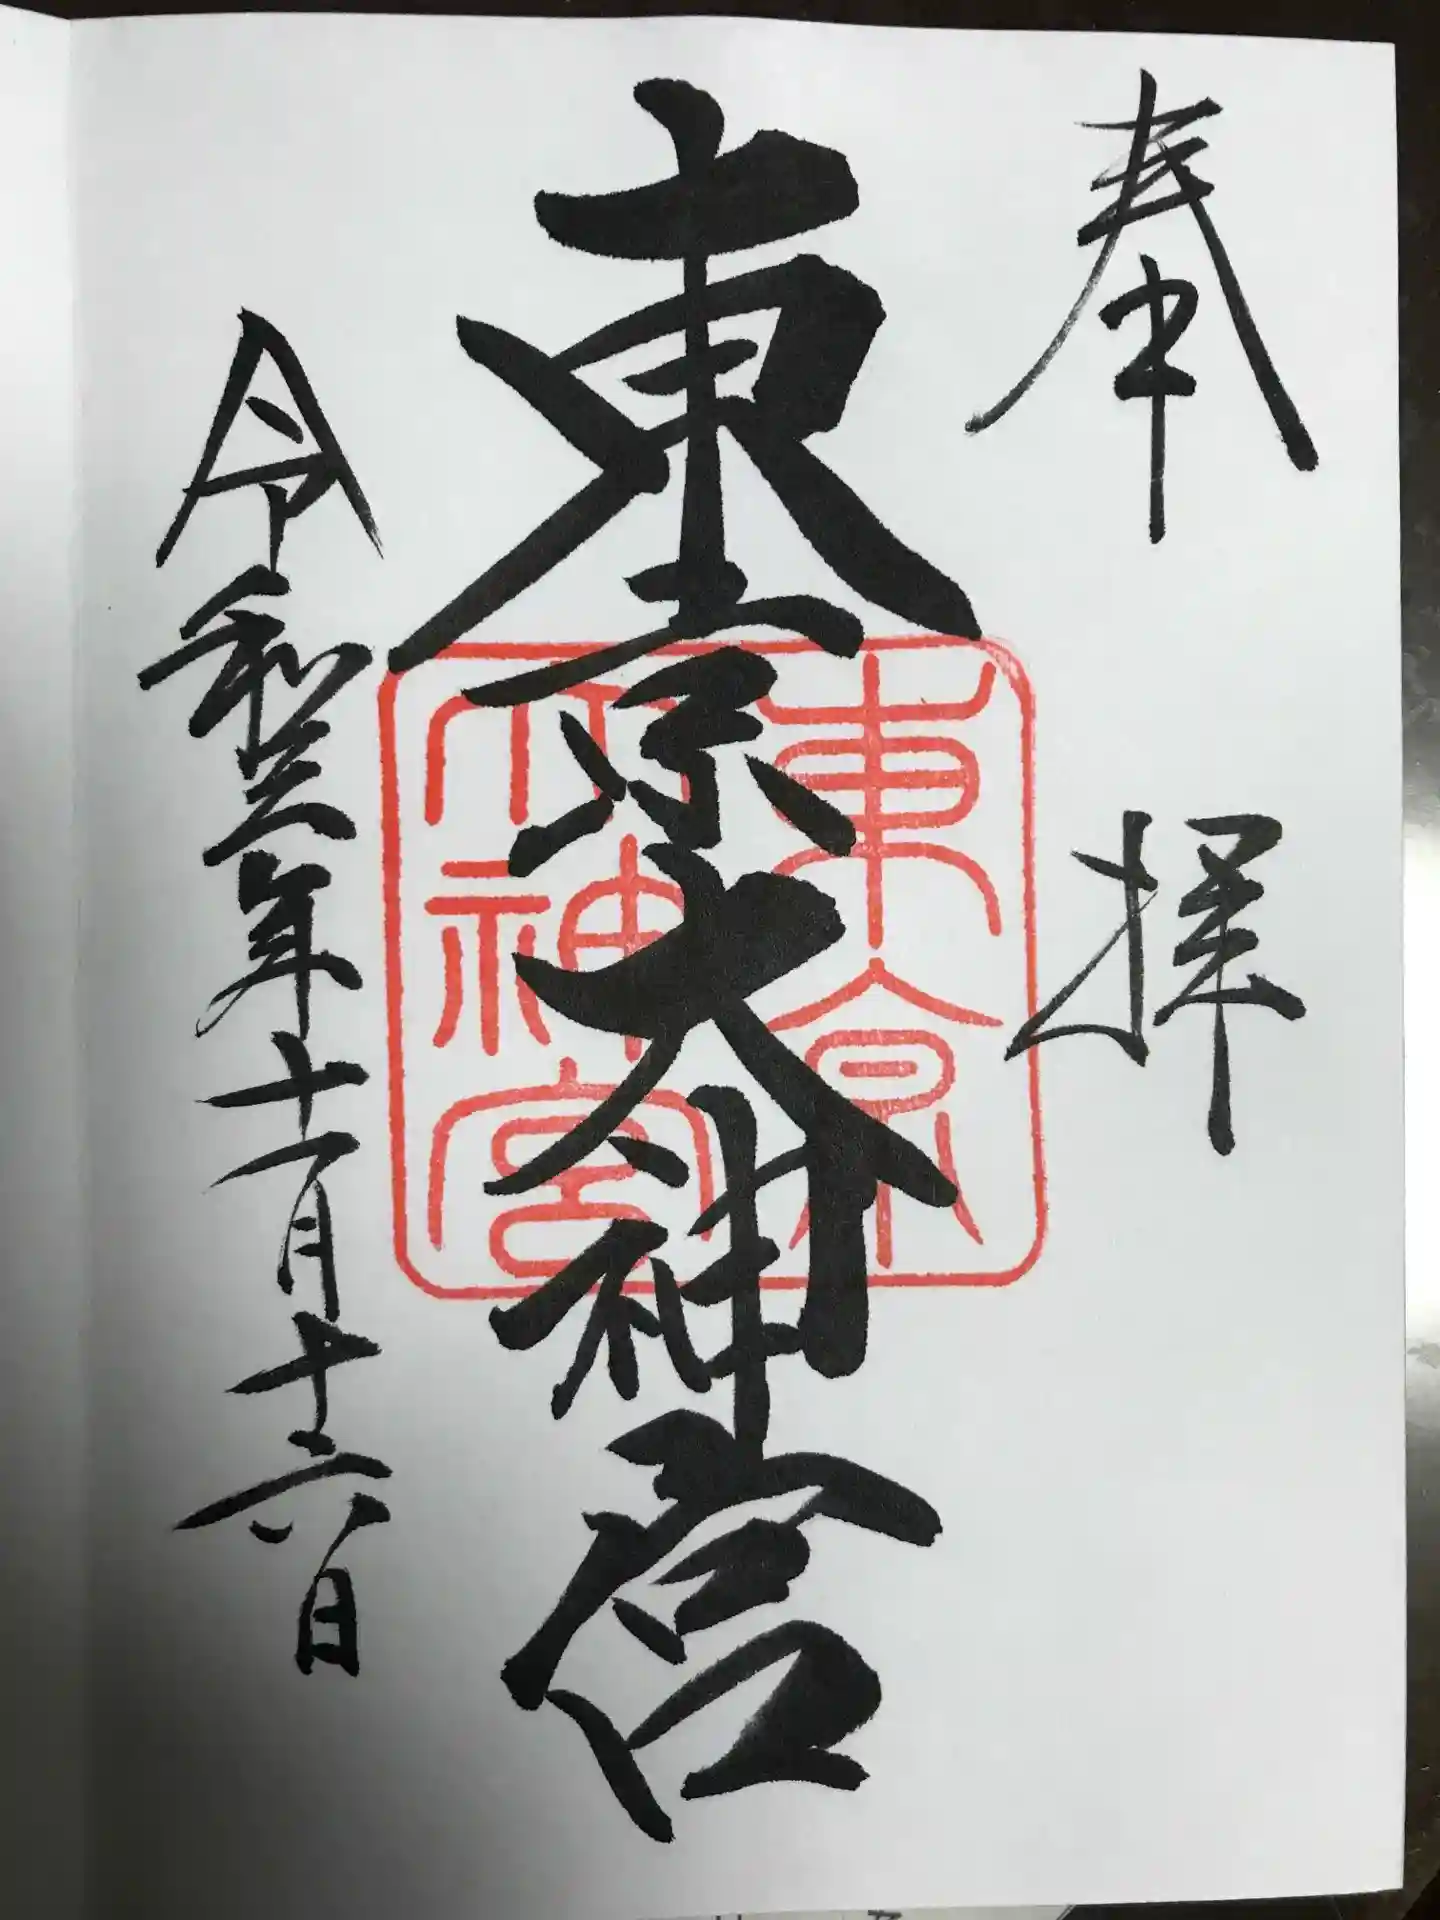 奉拝
東京大神宮
東京
大神宮
令和三年十一月十六日